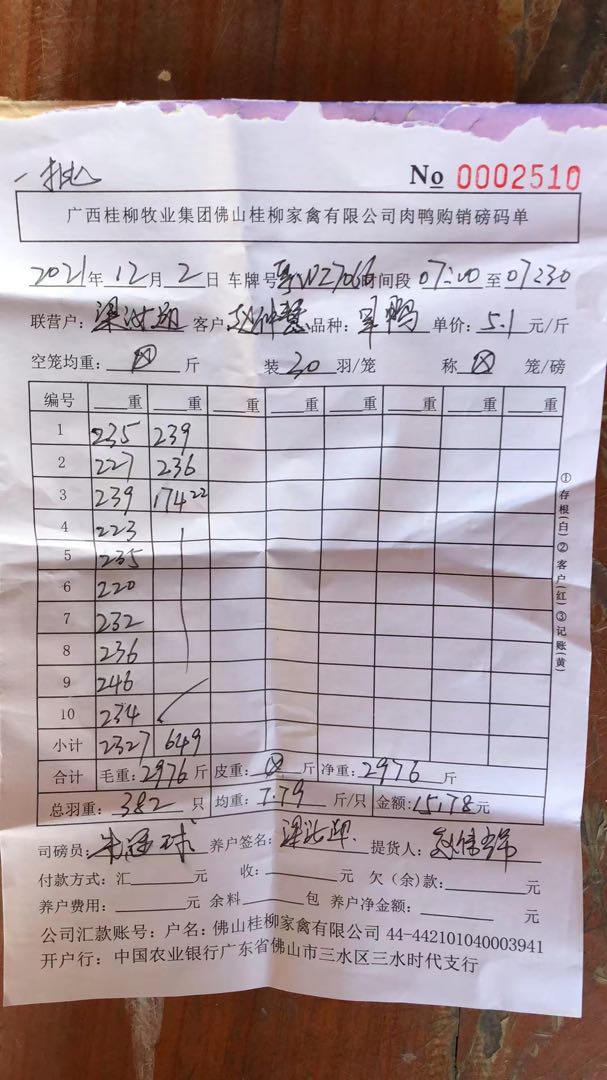 No 0002510
广西桂柳牧业集团佛山桂柳家禽有限公司肉鸭购销磅码单
2021年 12月 2日 车牌号 W27066 时间段 07:00 至 07:30
联营户: 梁 客户: 赵 品种: 鸭 单价: 5.1 元/斤
空笼均重: 斤 装 30 羽/笼 称 笼/磅
编号 重 重 重 重 重 重 重 重
1 235 239
2 227 236
3 239 174 22
4 223
5 235
6 220
7 232
8 236
9 246
10 234
小计 2327 649
合计 毛重: 2976 斤 皮重: 斤 净重: 2976 斤
总羽重: 382 只 均重: 7.79 斤/只 金额: 15178元
司磅员: 球 养户签名: 梁 提货人: 赵
付款方式: 汇 元 收: 元 欠(余)款: 元
养户费用: 元 余料 包 养户净金额: 元
公司汇款账号: 户名: 佛山桂柳家禽有限公司 44-442101040003941
开户行: 中国农业银行广东省佛山市三水区三水时代支行
①存根(白)②客户(红)③记账(黄)